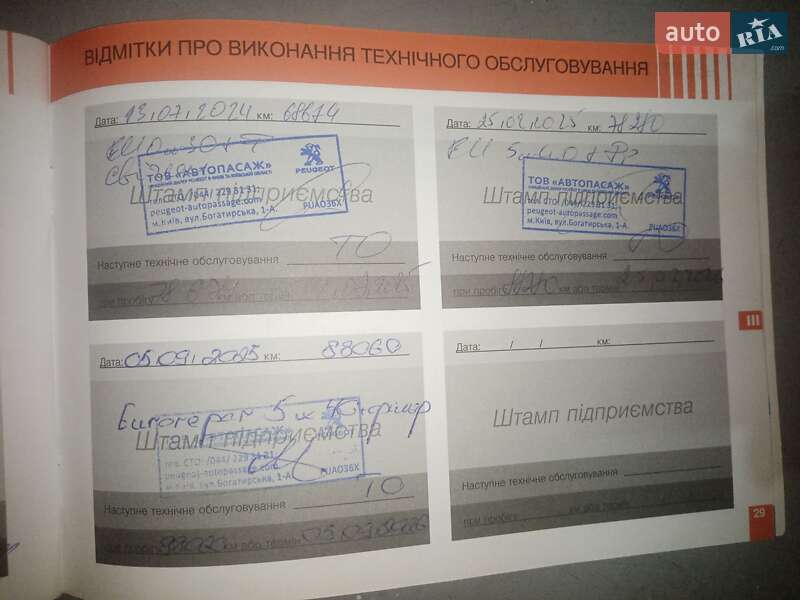 auto RIA.com
ВІДМІТКИ ПРО ВИКОНАННЯ ТЕХНІЧНОГО ОБСЛУГОВУВАННЯ
Дата: 13,07,2024 км: 68674
ТОВ «АВТОПАСАЖ»
PEUGEOT
Штамп підприємства
peugeot-autopassage.com
м.Київ, вул.Богатирська, 1-А.
PUA036X
Наступне технічне обслуговування ТО
при пробігу 78 674 км або термін
Дата: 25,02,2025 км: 78280
ТОВ «АВТОПАСАЖ»
Штамп підприємства
peugeot-autopassage.com
м.Київ, вул.Богатирська, 1-А.
PUA036X
Наступне технічне обслуговування
при пробігу км або термін 25,02,2026
III
Дата: 05,09,2025 км: 88060
5 w 40
Штамп підприємства
тел. СТО: /044/ 229 81 31
peugeot-autopassage.com
м.Київ, вул.Богатирська, 1-А.
PUA036X
Наступне технічне обслуговування ТО
при пробігу км або термін
Дата: / / км:
Штамп підприємства
Наступне технічне обслуговування
при пробігу км або термін
29